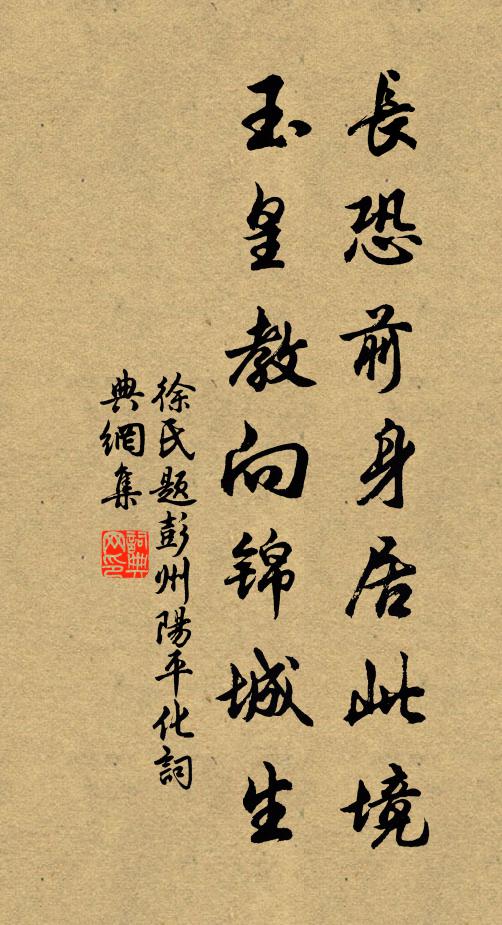 長恐前身居此境
玉皇教向錦城生
徐氏題彭州陽平化詞
典網集
詞典
网印